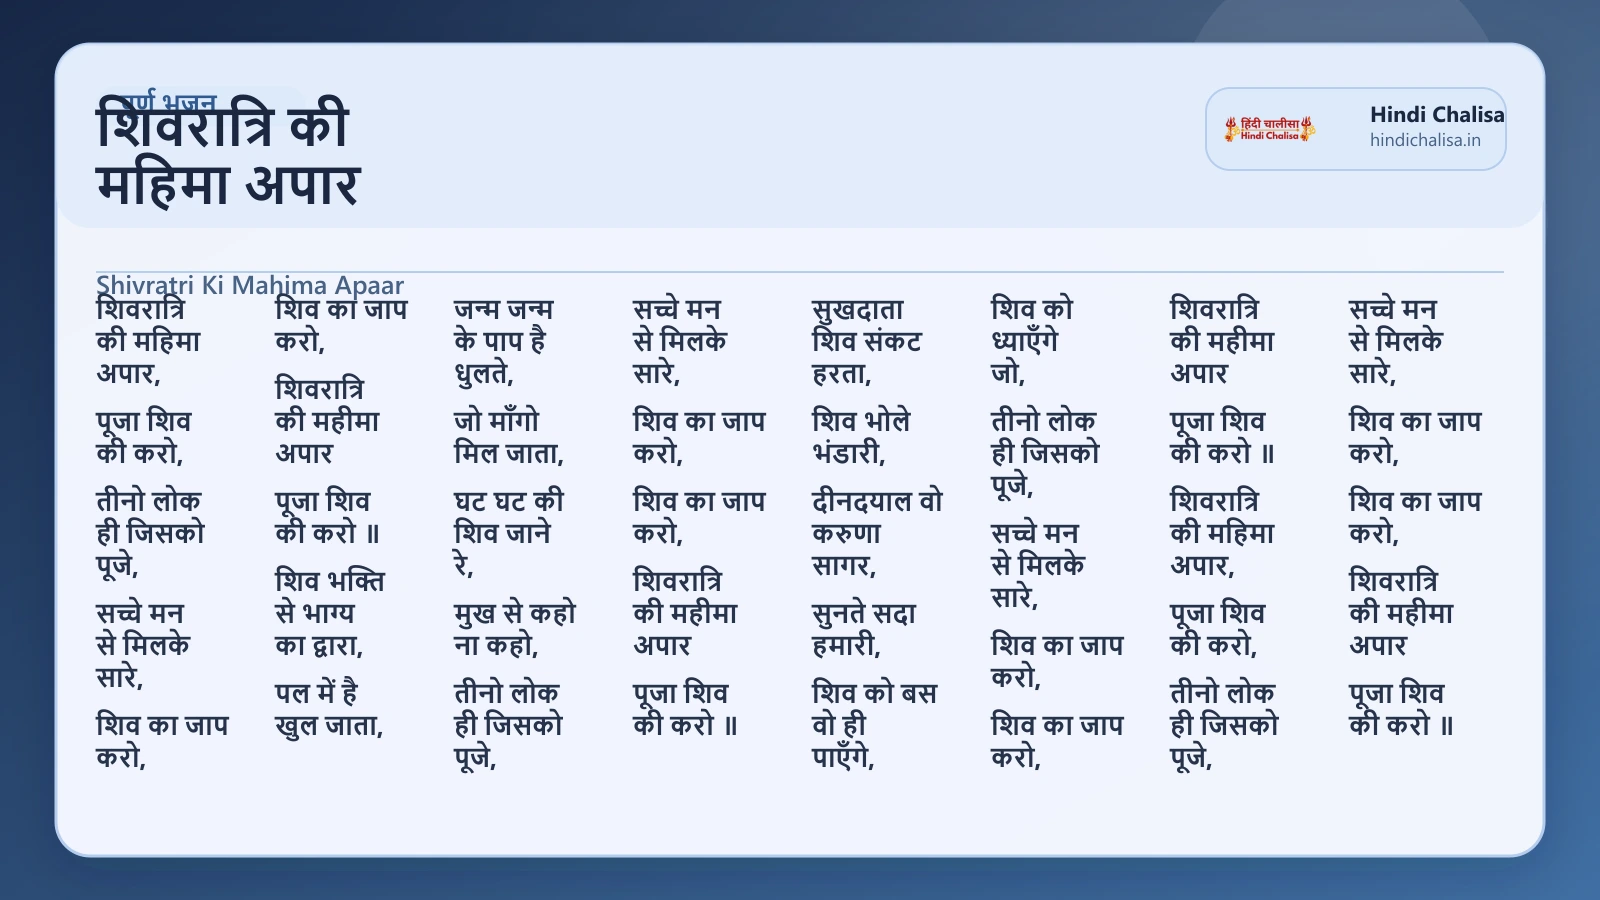 पूर्ण भजन
शिवरात्रि की
महिमा अपार
हिंदी चालीसा
Hindi Chalisa
Hindi Chalisa
hindichalisa.in
Shivratri Ki Mahima Apaar
शिवरात्रि
की महिमा
अपार,
पूजा शिव
की करो,
तीनो लोक
ही जिसको
पूजे,
सच्चे मन
से मिलके
सारे,
शिव का जाप
करो,
शिव का जाप
करो,
शिवरात्रि
की महीमा
अपार
पूजा शिव
की करो ॥
शिव भक्ति
से भाग्य
का द्वारा,
पल में है
खुल जाता,
जन्म जन्म
के पाप है
धुलते,
जो माँगो
मिल जाता,
घट घट की
शिव जाने
रे,
मुख से कहो
ना कहो,
तीनो लोक
ही जिसको
पूजे,
सच्चे मन
से मिलके
सारे,
शिव का जाप
करो,
शिव का जाप
करो,
शिवरात्रि
की महीमा
अपार
पूजा शिव
की करो ॥
सुखदाता
शिव संकट
हरता,
शिव भोले
भंडारी,
दीनदयाल वो
करुणा
सागर,
सुनते सदा
हमारी,
शिव को बस
वो ही
पाएँगे,
शिव को
ध्याएँगे
जो,
तीनो लोक
ही जिसको
पूजे,
सच्चे मन
से मिलके
सारे,
शिव का जाप
करो,
शिव का जाप
करो,
शिवरात्रि
की महीमा
अपार
पूजा शिव
की करो ॥
शिवरात्रि
की महिमा
अपार,
पूजा शिव
की करो,
तीनो लोक
ही जिसको
पूजे,
सच्चे मन
से मिलके
सारे,
शिव का जाप
करो,
शिव का जाप
करो,
शिवरात्रि
की महीमा
अपार
पूजा शिव
की करो ॥